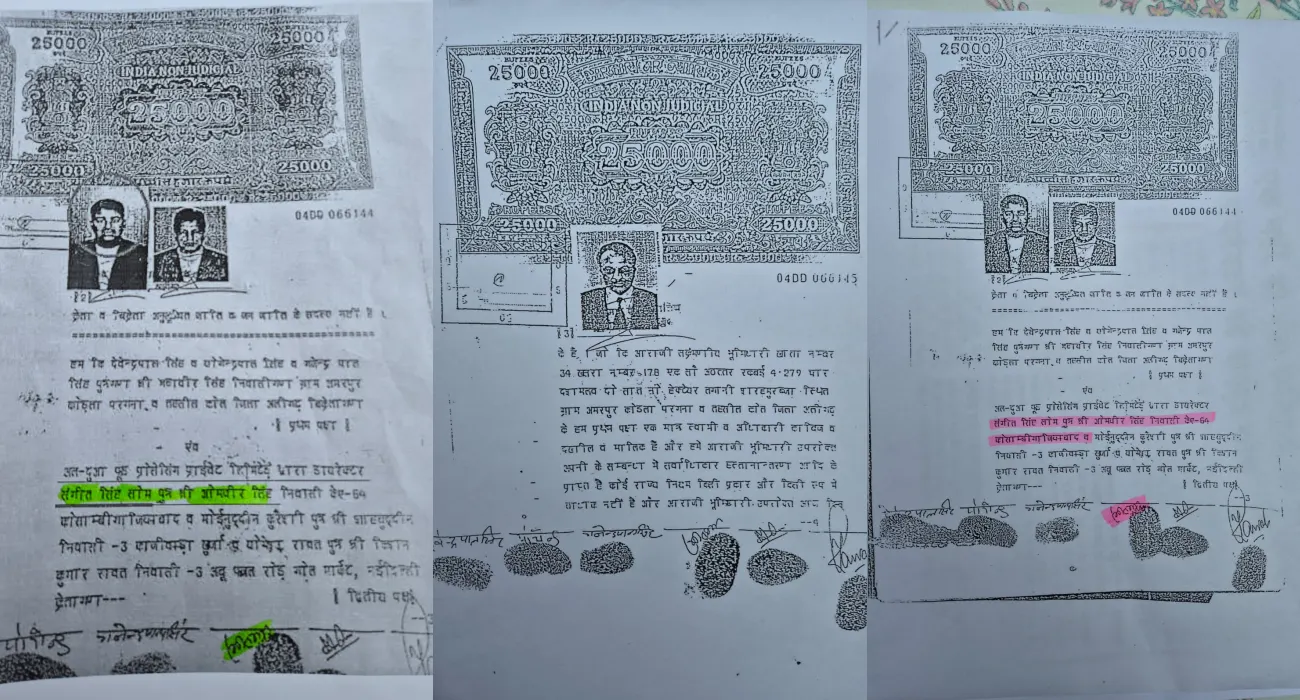 RUPEES
25000
25000
INDIA NON JUDICIAL
25000
25000
25000
04DD 066144
क्रेता व विक्रेता अनुसूचित जाति व जन जाति के सदस्य नहीं है ।
हम कि देवेन्द्रपाल सिंह व योगेन्द्रपाल सिंह व गजेन्द्र पाल
सिंह पुत्रगण श्री महावीर सिंह निवासीगण ग्राम अमरपुर
कोंडला परगना व तहसील कोल जिला अलीगढ़ विक्रेतागण
। प्रथम पक्ष ।
एंव
अल-दुआ फूड प्रोसेसिंग प्राईवेट लिमिटेड द्वारा डायरेक्टर
संगीत सिंह सोम पुत्र श्री ओमवीर सिंह निवासी केए-64
कौसाम्बीगाजियाबाद व मोईनुद्दीन कुरैशी पुत्र श्री
निवासी -3 काजीवाड़ा खुर्जा व योगेश रावत पुत्र श्री
कुमार रावत निवासी -3 अबू फजल रोड़ मार्केट, नईदिल्ली
क्रेतागण---
। द्वितीय पक्ष
RUPEES
25000
25000
INDIA NON JUDICIAL
25000
25000
25000
04DD 066145
के है, । जो कि आराजी संक्रमणीय भूमिधारी खाता नम्बर
34 खसरा नम्बर-178 एक सौ अठत्तर रकवई 4.279 चार
दशमलव दो सात नौ हेक्टेयर लगानी स्थित
ग्राम अमरपुर कोंडला परगना व तहसील कोल जिला अलीगढ़
के हम प्रथम पक्ष एक मात्र स्वामी व अधिकारी काबिज व
दखील व मालिक है और हमे आराजी भूमिधारी उपरोक्त
अपनी के सम्बन्ध मे सर्वाधिकार हस्तानान्तरण आदि के
प्राप्त है कोई राज्य नियम किसी प्रकार और किसी रूप मे
बाधक नहीं है और आराजी भूमिधारी उपरोक्त आज दिन
---4
RUPEES
25000
25000
INDIA NON JUDICIAL
25000
25000
25000
04DD 066144
क्रेता व विक्रेता अनुसूचित जाति व जन जाति के सदस्य नहीं है ।
हम कि देवेन्द्रपाल सिंह व योगेन्द्रपाल सिंह व गजेन्द्र पाल
सिंह पुत्रगण श्री महावीर सिंह निवासीगण ग्राम अमरपुर
कोंडला परगना व तहसील कोल जिला अलीगढ़ विक्रेतागण
। प्रथम पक्ष ।
एंव
अल-दुआ फूड प्रोसेसिंग प्राईवेट लिमिटेड द्वारा डायरेक्टर
संगीत सिंह सोम पुत्र श्री ओमवीर सिंह निवासी केए-64
कौसाम्बीगाजियाबाद व मोईनुद्दीन कुरैशी पुत्र श्री
निवासी -3 काजीवाड़ा खुर्जा व योगेश रावत पुत्र श्री
कुमार रावत निवासी -3 अबू फजल रोड़ मार्केट, नईदिल्ली
क्रेतागण---
। द्वितीय पक्ष
---3